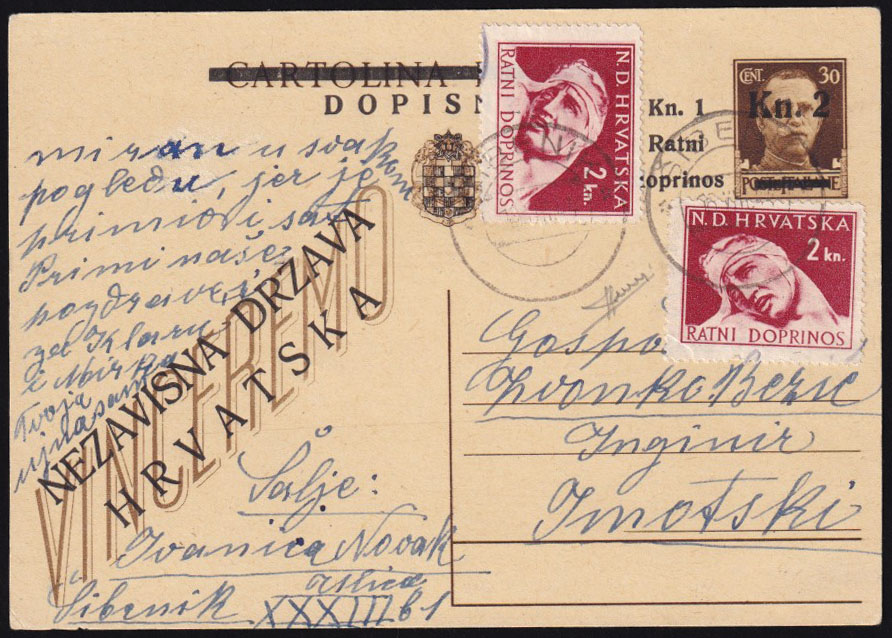 CARTOLINA
DOPISN
N.D.HRVATSKA
2 kn.
RATNI DOPRINOS
Kn. 1
Ratni
doprinos
CENT. 30
Kn. 2
POSTE ITALIANE
N.D.HRVATSKA
2 kn.
RATNI DOPRINOS
miran u svakom
pogledu, jer je
primio i sat
Primi naše
pozdrave i
za Klaru
i Mirka
Tvoja
NEZAVISNA DRŽAVA
HRVATSKA
VINCEREMO
Šalje:
Ivanica Novak
Šibenik XXXIII b1
Gospo
Zvonko Bezić
Inginir
Imotski